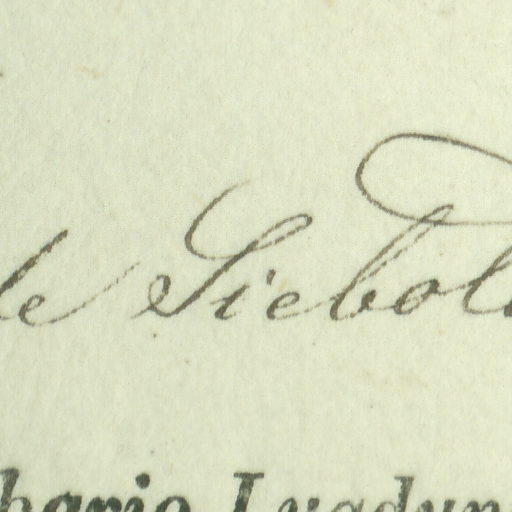 de Siebold
bario Lugdun